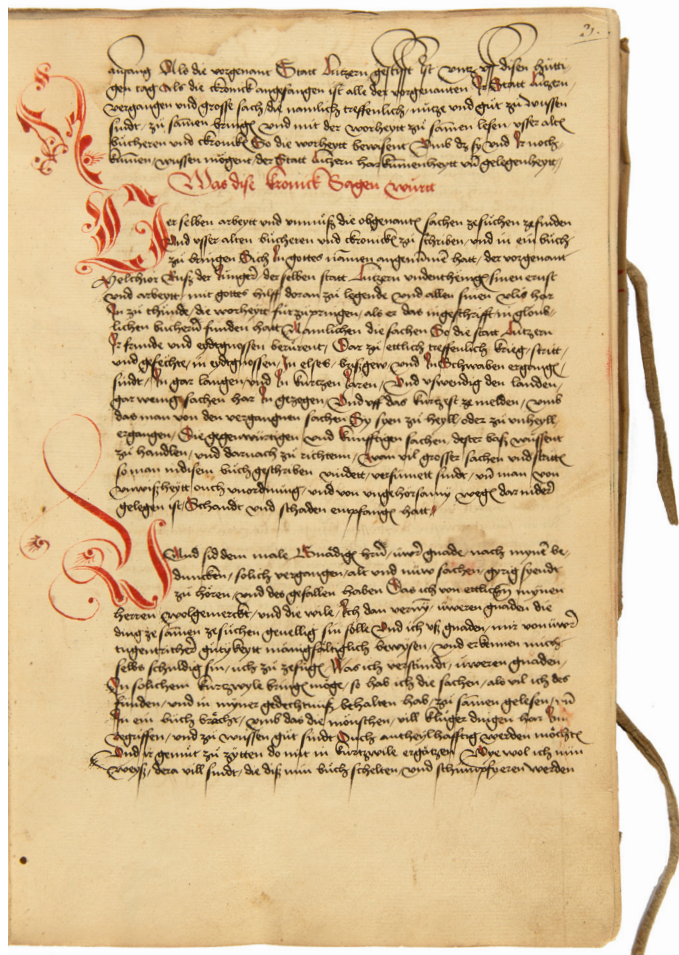 21.
anfang Als die vorgenant Statt Lutzern gestifft ist / vntz vff disen hütti-
gen tag Als die Cronick angefangen ist alle der vorgenanten Ir Statt Lutzern /
vergangen vnd grosse sach / die namlich treffenlich / nütze vnd güt zü wüssen
sindt / zü samen bringen / vnd mit der worheytt zü samen lesen / vsser alten
bücheren vnd Cronicken So die worheytt bewisent / Vmb dz sy vnd Ir noch-
kumen / wüssen mögent / der Statt Lutzern harkumenheytt vnd gelegenheytt /
Was dise kronick Sagen württ
Der selben arbeytt vnd vnmüß die obgenanten sachen zesüchen ze finden
Vnd vsser alten bücheren vnd Cronicken zü schriben / vnd in ein büch
zü bringen Sich In gottes namen angenamen hatt / der vorgenant
Melchior Rusß der Jünger / der selben statt Lutzern vnderthenigen sinen ernst
vnd arbeytt / mit gottes hilff doran zü legende / vnd allen sinen vlis har
In zü thünde / die worheytt fürzupringen / als er das ingeschrifft in gloub-
lichen büchern funden hatt Namlichen die sachen So die statt Lutzern
Ir fründe vnd eydegnossen berürent / Dar zü ettlich treffenlich krieg / stritt /
vnd gefechte / in eydegnossen / In elses / brißgew / vnd In Schwaben ergangen
sindt / In gar langen / vnd In kurtzen Jaren / Vnd vswendig den landen /
gar wenig sachen har In gezogen / Vnd vff das kurtzest ze melden / vmb
das man von den vergangnen sachen Sy syen zü heyll oder zü vnheyll
ergangen / Die gegenwürtigen vnd künfftigen sachen / dester baß wüssent
zü handlen / vnd darnach zü richtenn / Wan vil grosser sachen vnd stritten
so man in disem büch geschriben vindett / versumett sindt / vnd man von
vnwißheytt ouch vnordnung / vnd von vngehorsamy wegen dar nider
gelegen ist / Schandt vnd schaden empfangen hatt /
Vnd sid dem male Gnädigen herren / üwer gnade / nach mynem be-
duncken / solich vergangen / alt vnd nüw sachen / gyrig syendt
zü hören / vnd des gefallen haben Das ich von ettlichen mynen
herren wolgemerckt / vnd die wile / Ich dan vernym / üweren gnaden die
ding ze samen ze süchen gevellig sin sölle Vnd ich vß gnaden / mir von üwer
tugentricher gütykeytt mänigfaltiglich bewysen / vnd erkennen mich
selbs schuldig sin / üch zü zefügen Was ich verstündt / üweren gnaden /
In solichem kurtzwyle bringen möge / so hab ich die sachen / als vil ich des
funden / vnd in myner gedechtnuß behalten hab / zü samen gelesen / vnd
In ein büch brächt / vmb das die mönschen / vill klüger dingen har In
begriffen / vnd zü wüssen güt sindt Ouch antheylhafftig werden möchten
Vnd ir gemüt zü zytten do mit in kurtzwile ergötzen Wye wol ich nun
weyß / dera vill sindt / die diß min büch schelten / vnd schümpfyeren werden